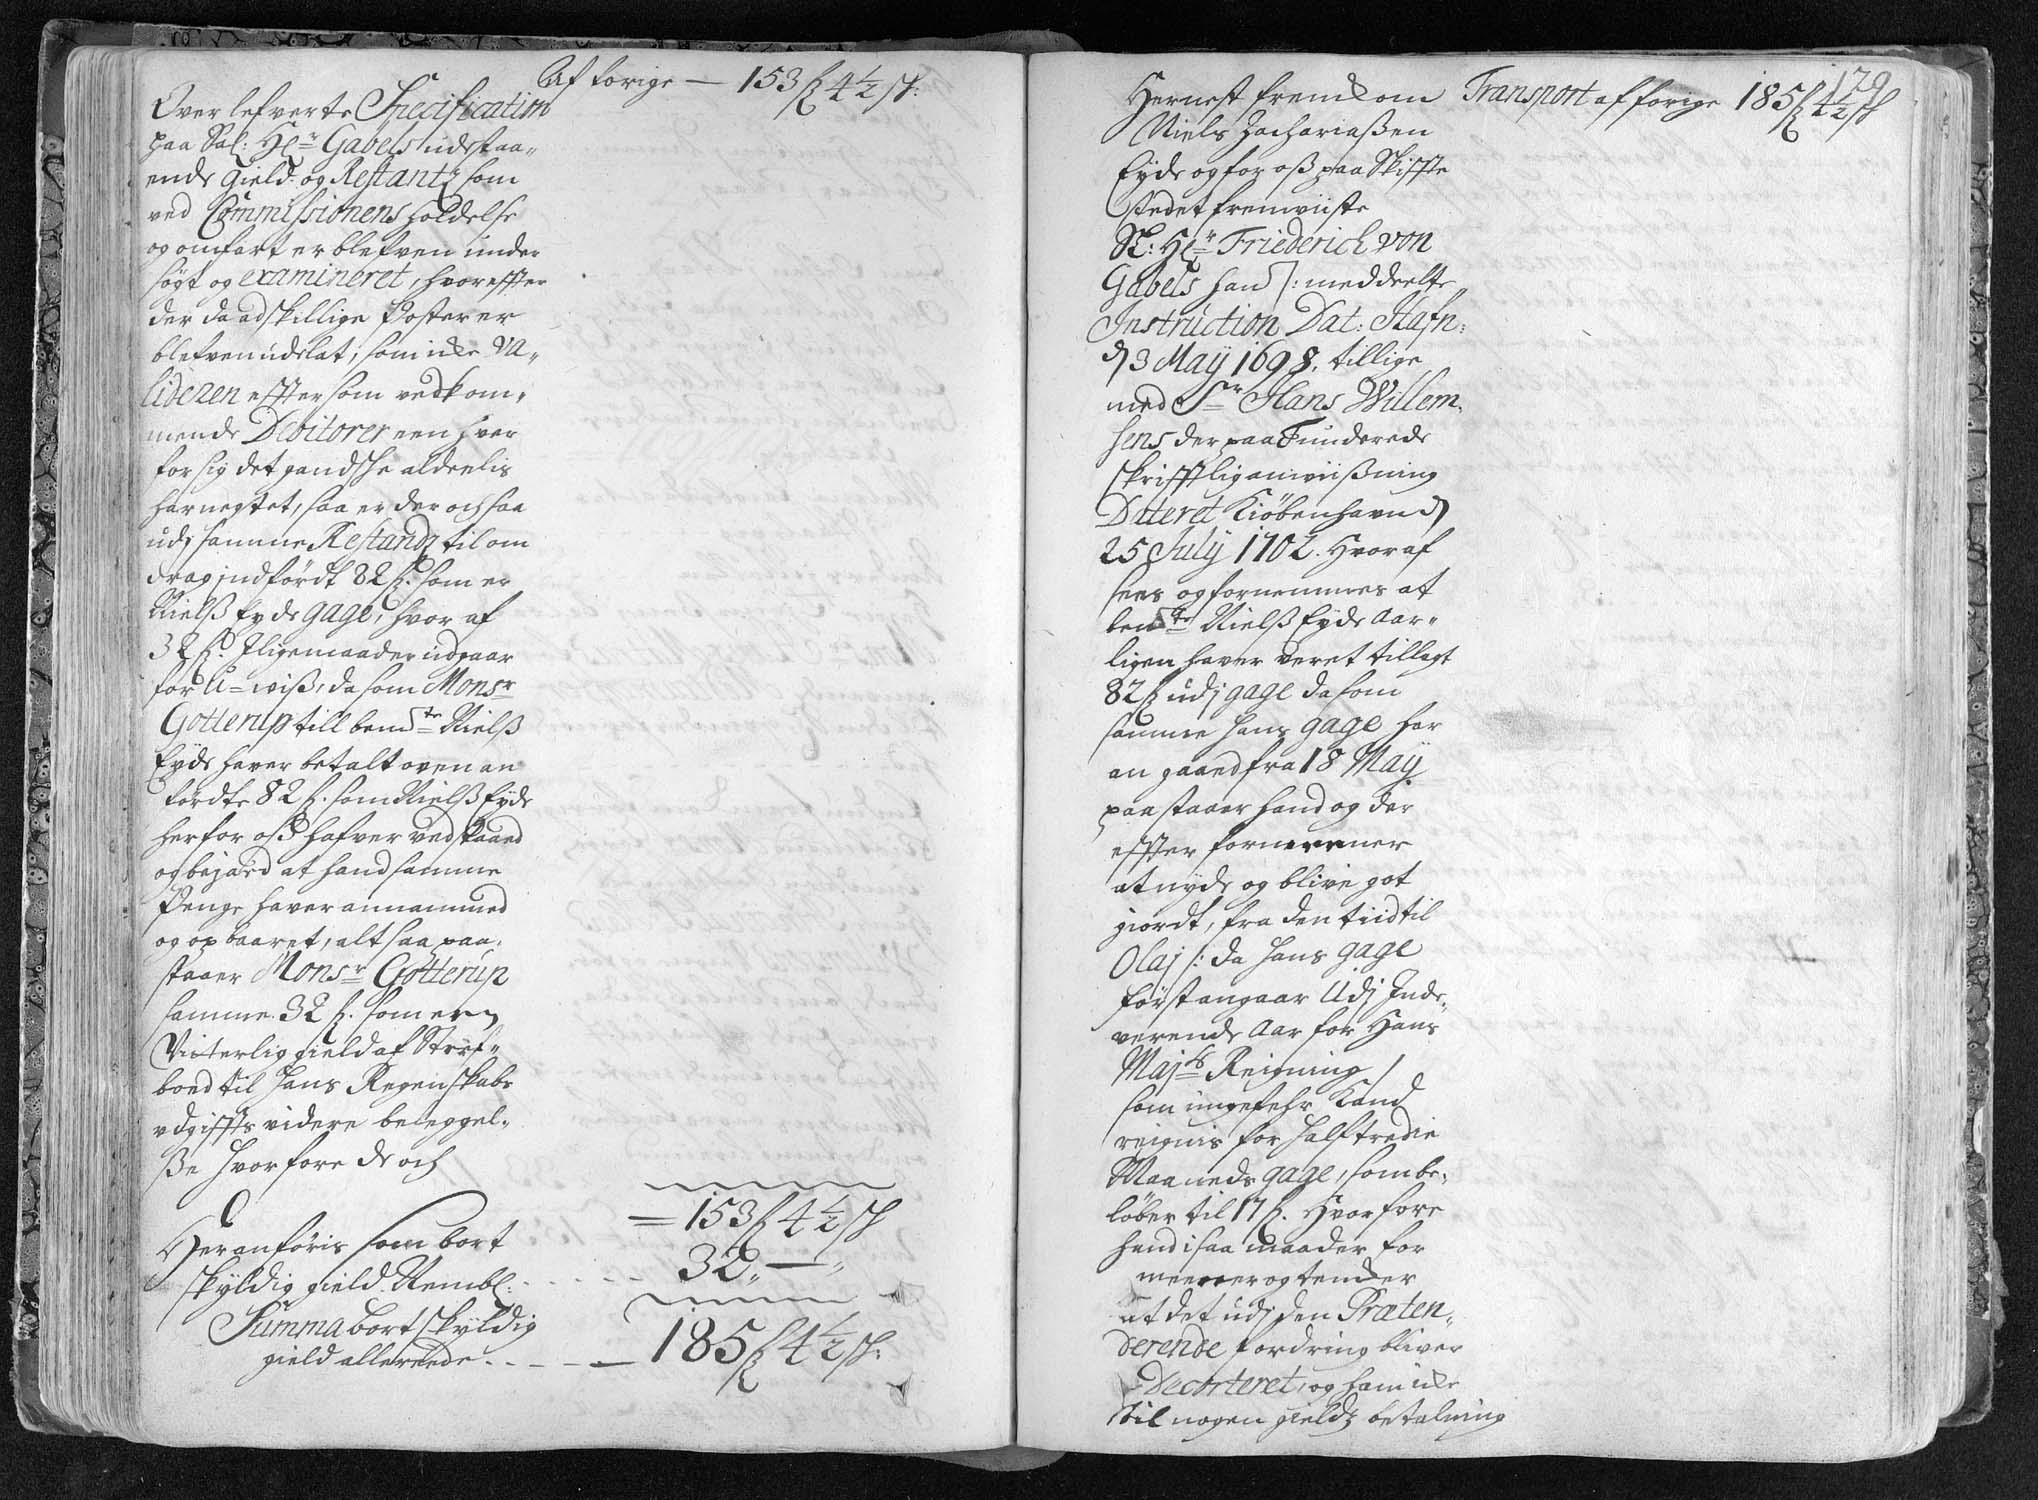 Af forige — 153 ſſ 4½ ſſ:
Over lefverte Specification
paa Sal: Hr Gabels udestaa„
ende gield og Restantz som
ved Commissionens holdelse
og omfart er blefven under
søgt og examineret, hvor effter
der da adskillige Poster er
blefven udelat, som icke va„
lideren effter som vedkom„
mende Debitorer een hver
for sig det gandsche aldeelis
har negtet, saa er der och saa
udj samme Restandz til om
drag indfördt 82 ſſ. som er
Nielß Eyde gage, hvor af
32 ſſ. Iligemaader udgaar
for U=wiß, da som Monsr
Gotterup till bemte Nielß
Eyde haver betalt oven an
fördte 82 ſſ. som Nielß Eyde
her for oß hafver vedstaaed
og bejaed at hand samme
Penge haver annammed
og op baaret, alt saa paa„
staaer Monsr Gotterup
samme 32 ſſ. som een
Visterlig gield af Sterf„
boed til hans Regenskabs
udgiffts videre beleggel„
ße hvor fore de och
— 153 ſſ 4½ ſſ
Her anföris som bort
skyldig gield Rembl: - - - - - 32 „ — „
Summa bort skyldig
gield allereede - - - - — 185 ſſ 4½ ſſ:
179
Hernest fremkom Transport af forige 185 ſſ 4½ ſſ
Niels Zachariaßen
Eyde og for oß paa Skiffte
stedet fremviiste
Sl: Hr Friederich von
Gabels ham /: meddeelte
Instruction Dat: Hafn:
d 3 Maij 1698. tillige
med Sr Hans Willem„
sens der paa Funderede
skrifftlig anviißning
Dateret Kiöbenhavn d
25 July 1702. Hvor af
sees og fornemmes at
bemte Nielß Eyde aar„
ligen haver veret tillagt
82 ſſ udj gage da som
samme hans gage har
an gaaed fra 18 Maij
paa staaer hand og der
effter formeener
at nyde og blive got
giordt, fra den tiid til
Olaj /: da hans gage
först angaar Udj Inde„
verende Aar for Hans
Majts Reigning /
som ungefehr Kand
reignis for halftredie
Maaneds gage, som be„
löber til 17 ſſ. Hvor fore
hand i saa maader for
meener og tencker
at det udj den Præten„
derende fordring bliver
Decorteret, og ham icke
til nogen gieldz betalning